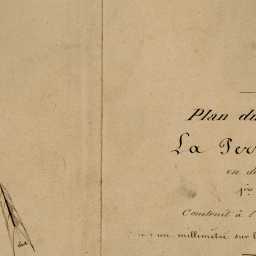 Plan du
La Per
en d
1re
Construit à l'
un millimètre sur l